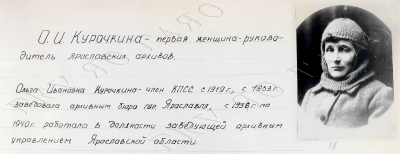 О. И. Курочкина - первая женщина-руково-
дитель ярославских архивов.
Ольга Ивановна Курочкина - член КПСС с 1919 г., с 1933 г.
заведовала архивным бюро гор. Ярославля, с 1938 г. по
1940 г. работала в должности заведующей архивным
управлением Ярославской области.